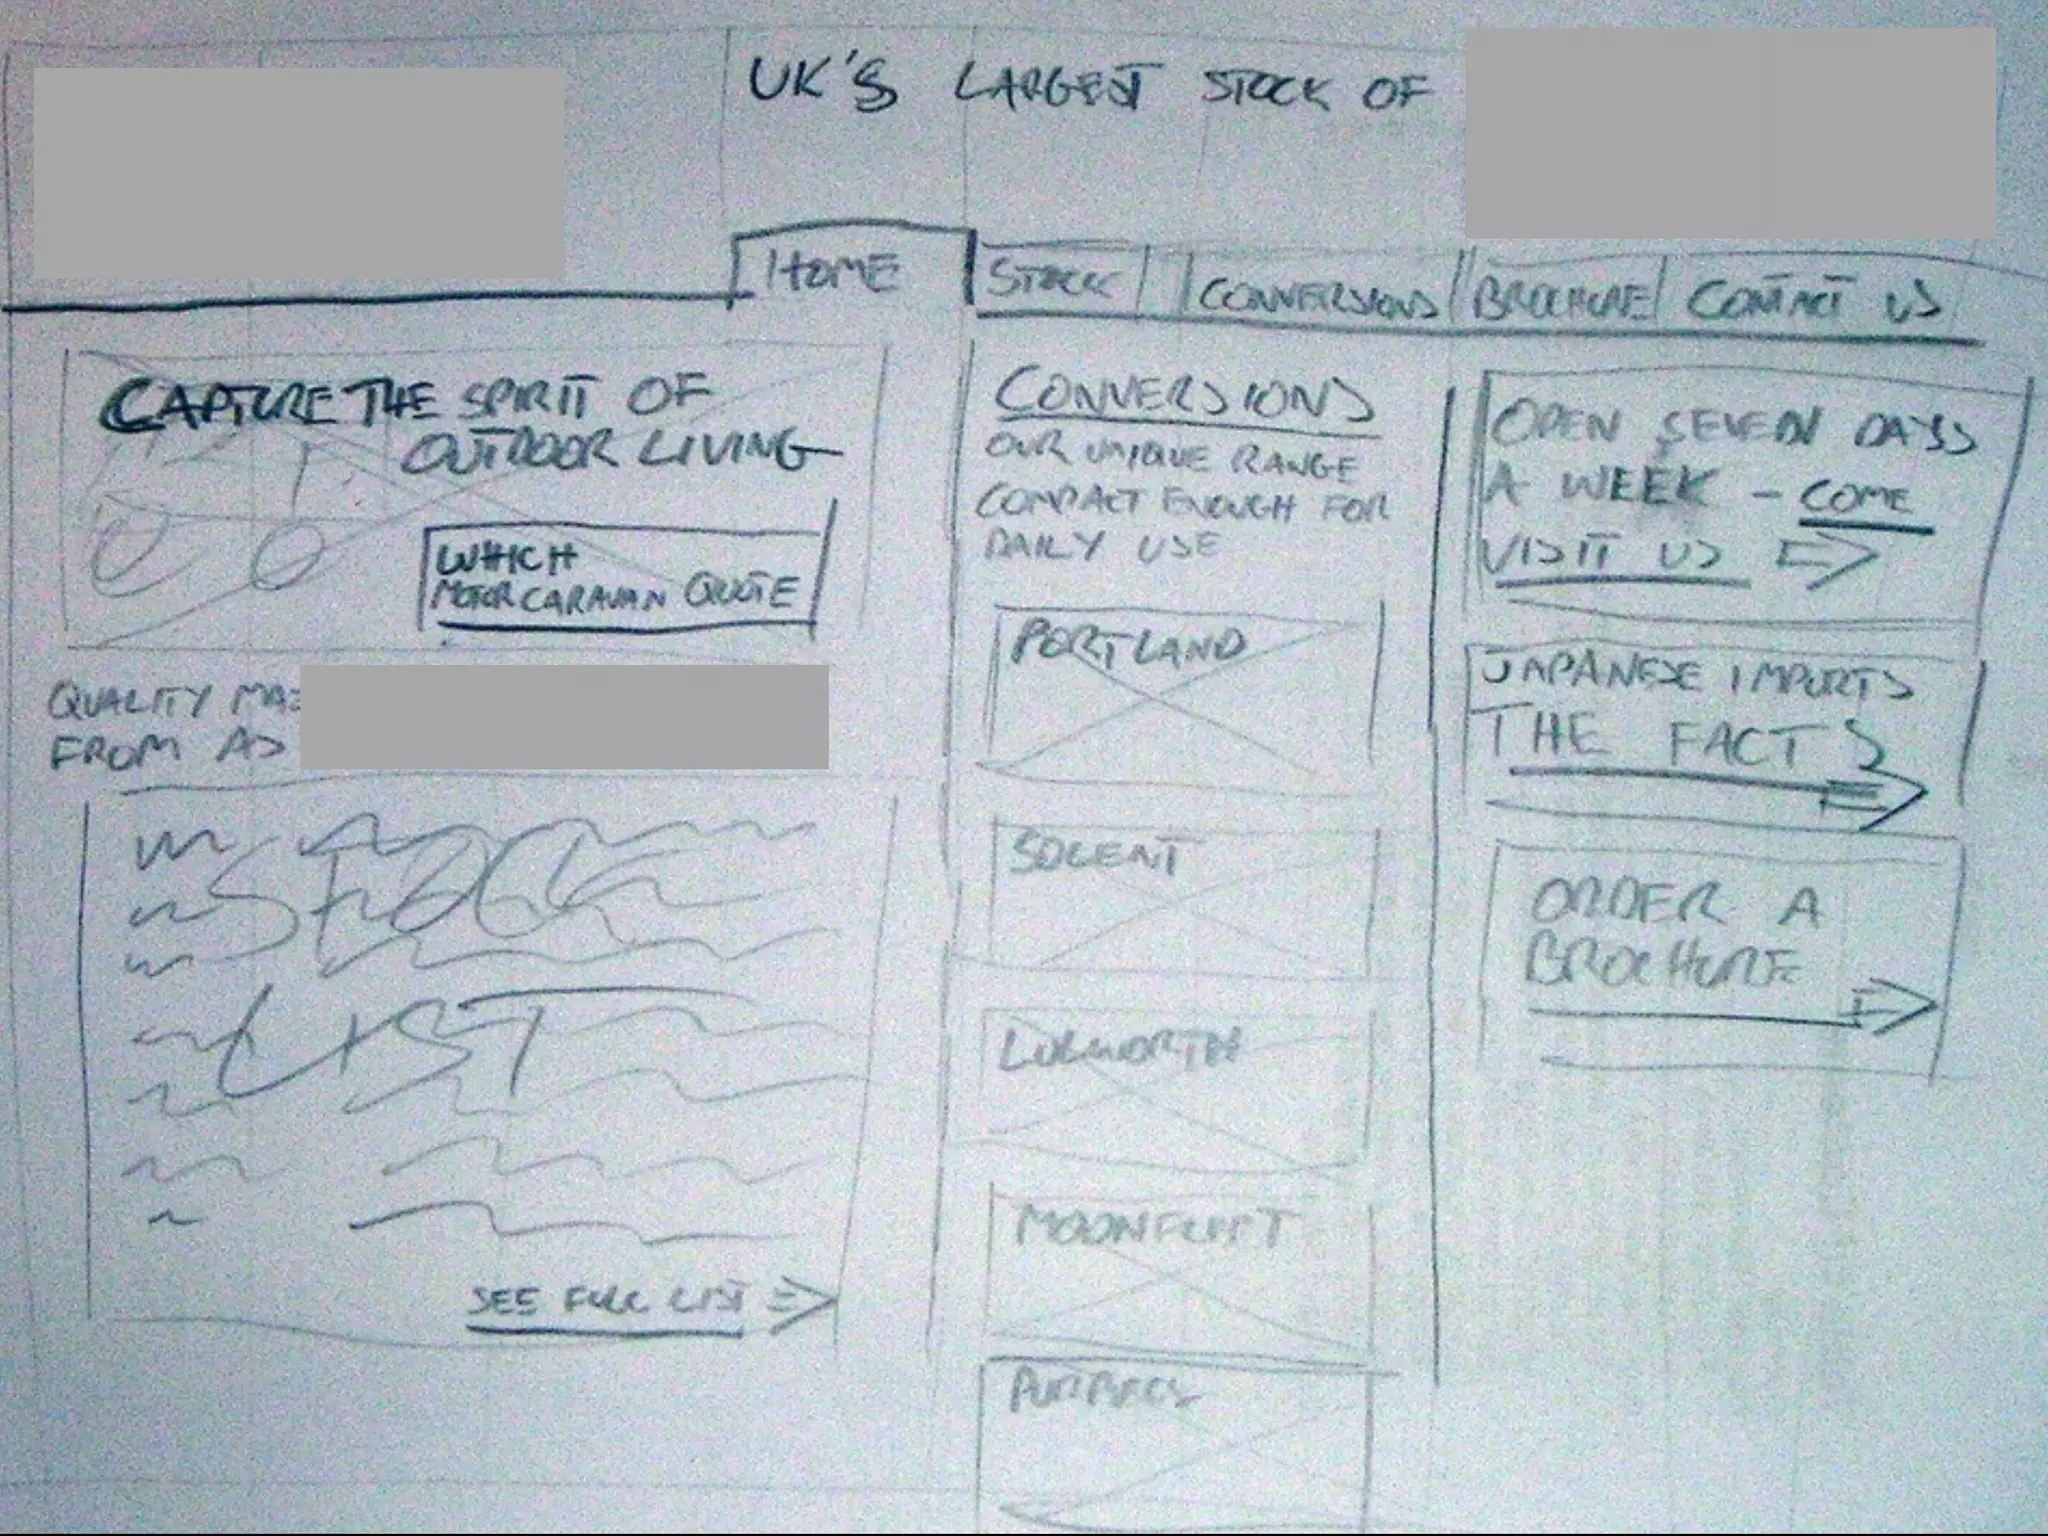 UK'S LARGEST STOCK OF
HOME
STOCK
CONVERSIONS
BROCHURE
CONTACT US
CAPTURE THE SPIRIT OF
OUTDOOR LIVING
WHICH
MOTORCARAVAN QUOTE
QUALITY
FROM
STOCK
LIST
SEE FULL LIST
CONVERSIONS
OUR UNIQUE RANGE
COMPACT ENOUGH FOR
DAILY USE
PORTLAND
SOLENT
LULWORTH
MOONFLEET
PURBECK
OPEN SEVEN DAYS
A WEEK - COME
VISIT US
JAPANESE IMPORTS
THE FACTS
ORDER A
BROCHURE